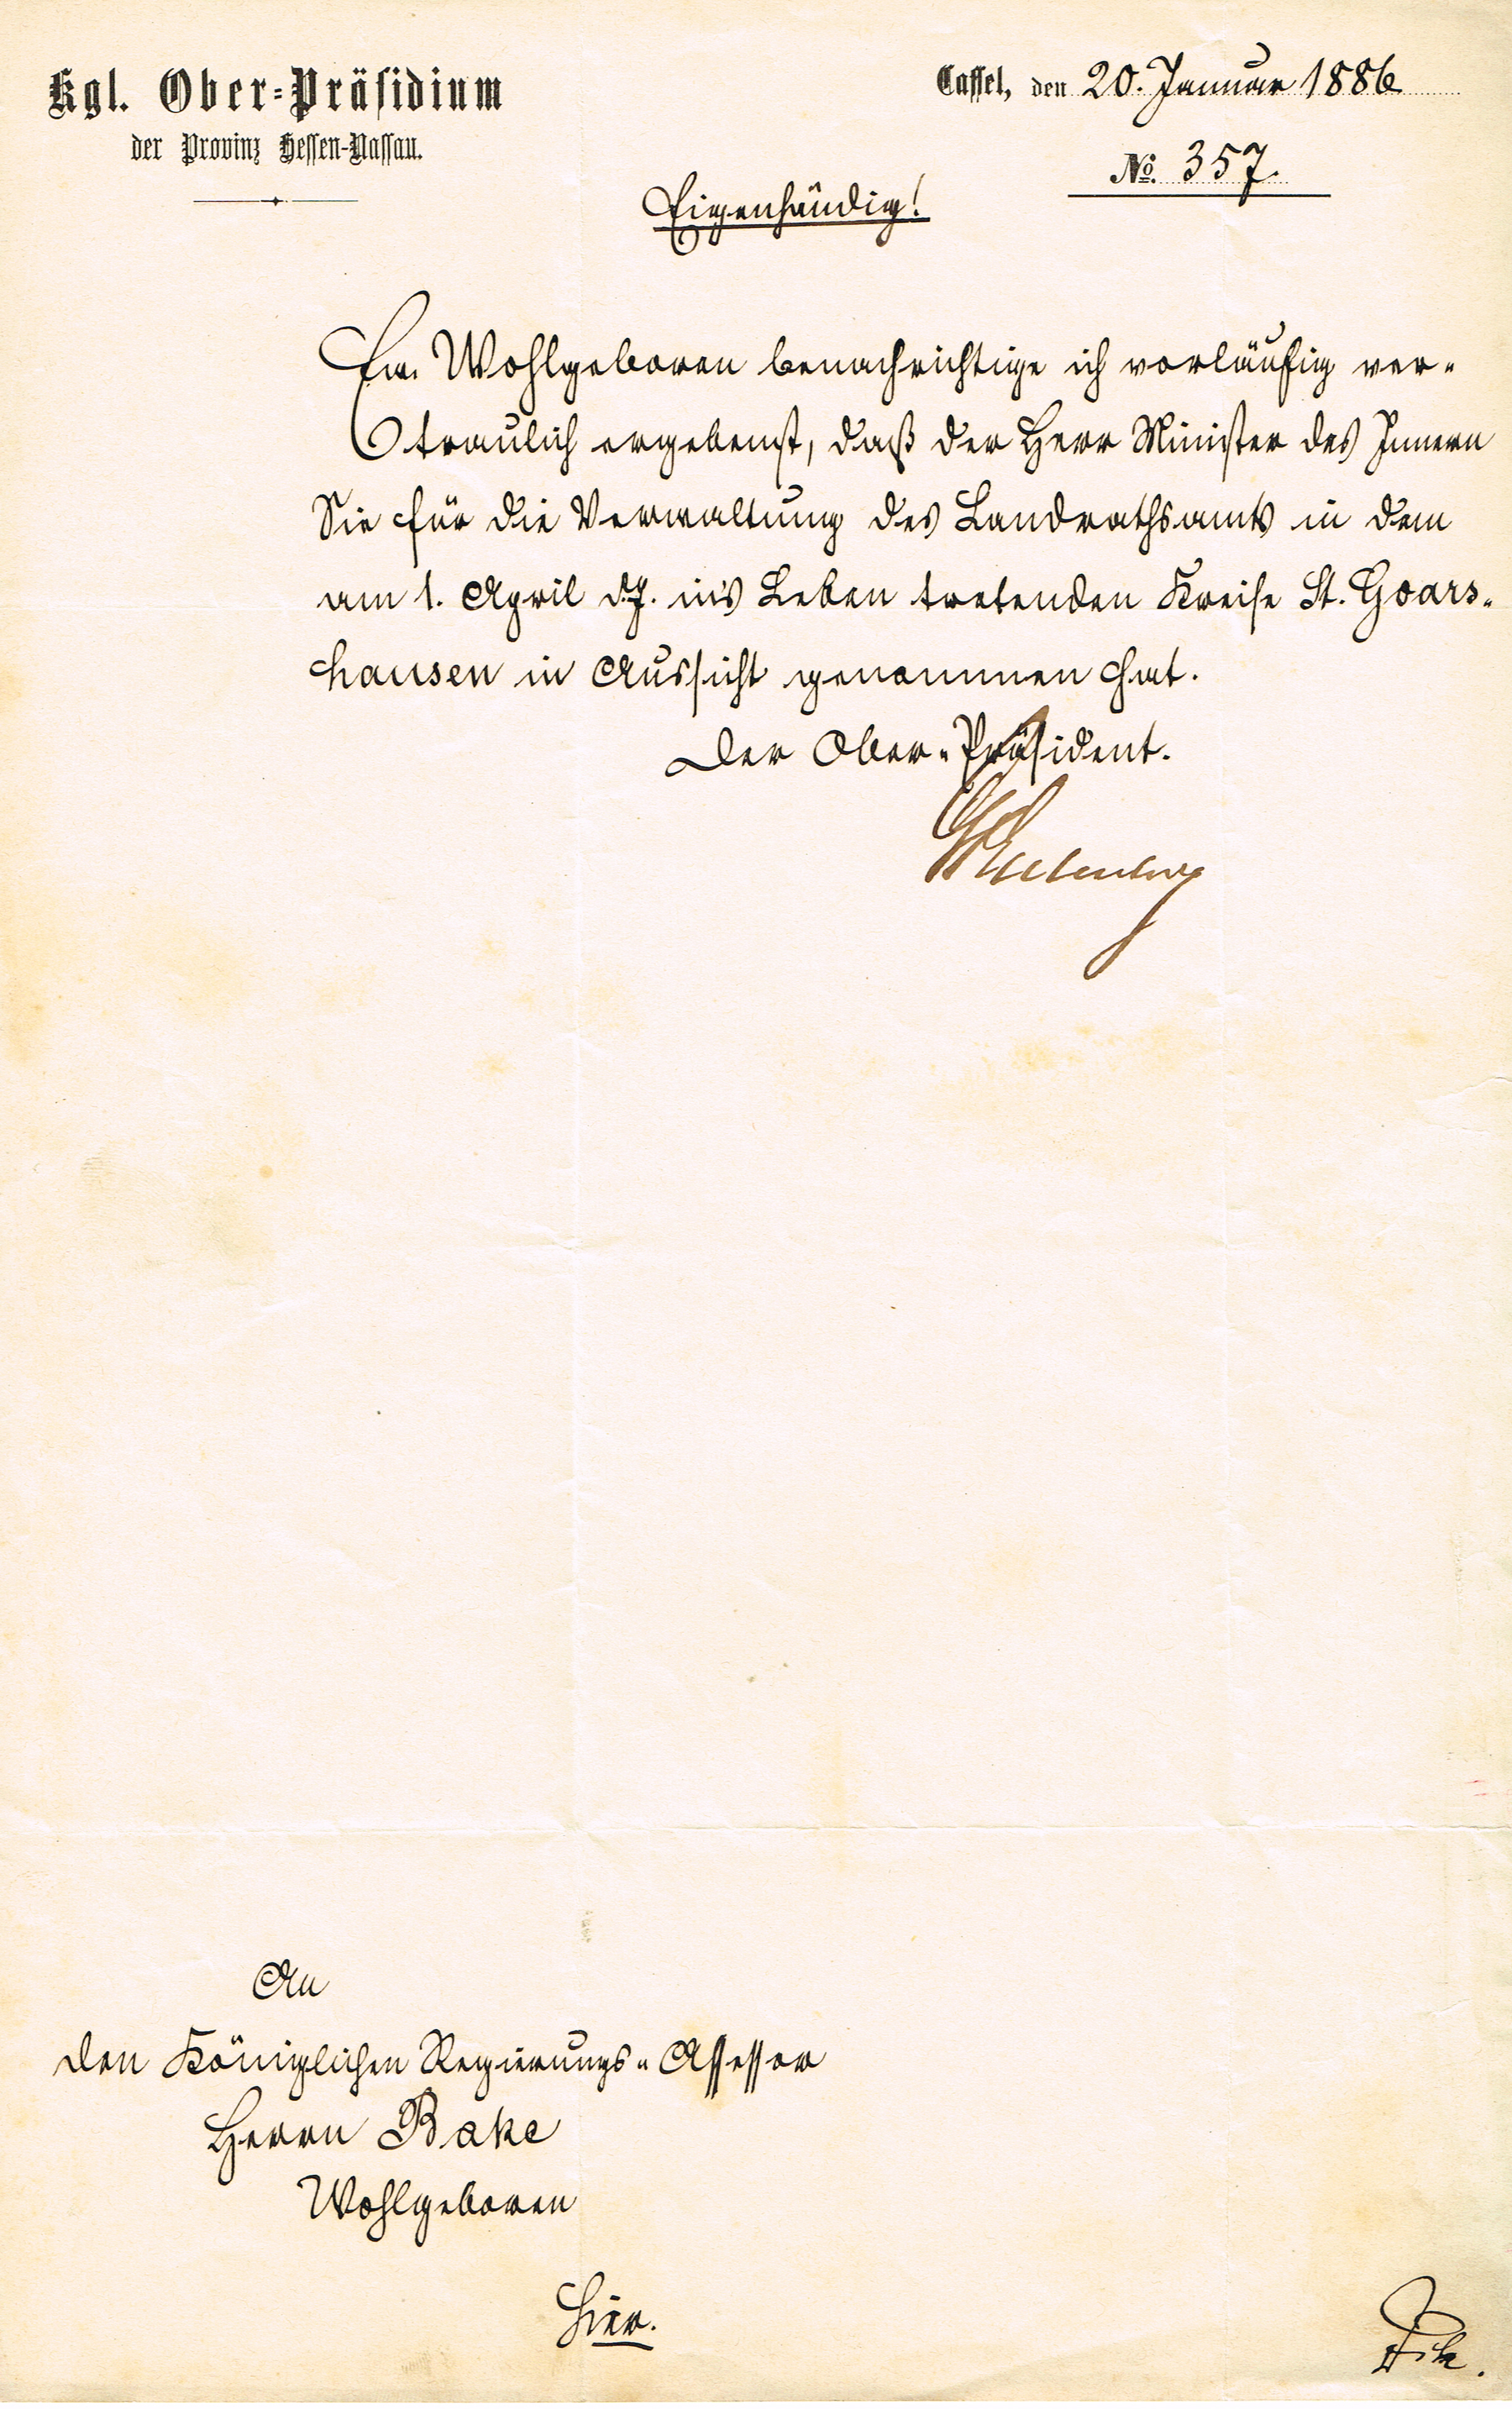 Kgl. Ober-Präsidium
der Provinz Hessen-Nassau.
Cassel, den 20. Januar 1886
No. 357.
Eigenhändig!
Ew. Wohlgeboren benachrichtige ich vorläufig ver-
traulich ergebenst, daß der Herr Minister des Innern
Sie für die Verwaltung des Landrathsamts in dem
am 1. April d.J. in's Leben tretenden Kreise St. Goars-
hausen in Aussicht genommen hat.
Der Ober-Präsident.
Eulenburg
An
den Königlichen Regierungs-Assessor
Herrn Bake
Wohlgeboren
Hier.